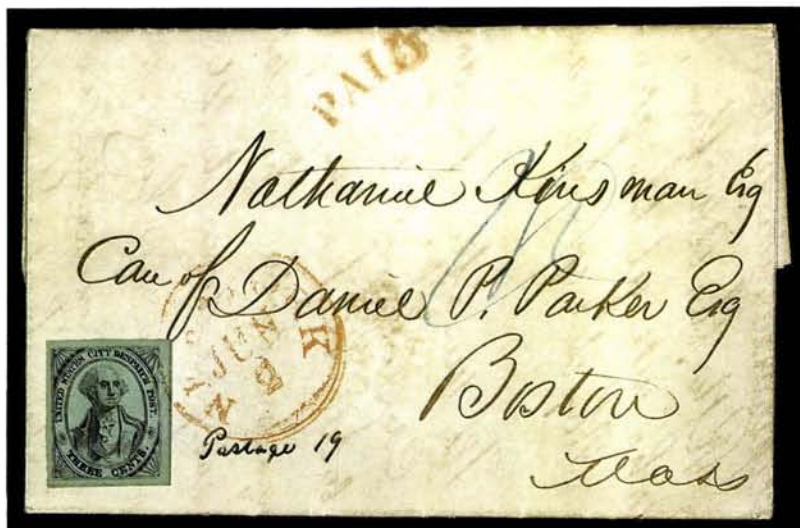 PAID
Nathaniel Kinsman Esq
Care of Daniel P. Parker Esq
Boston
Mass
JUN
UNITED STATES CITY DESPATCH POST.
THREE CENTS.
Postage 19